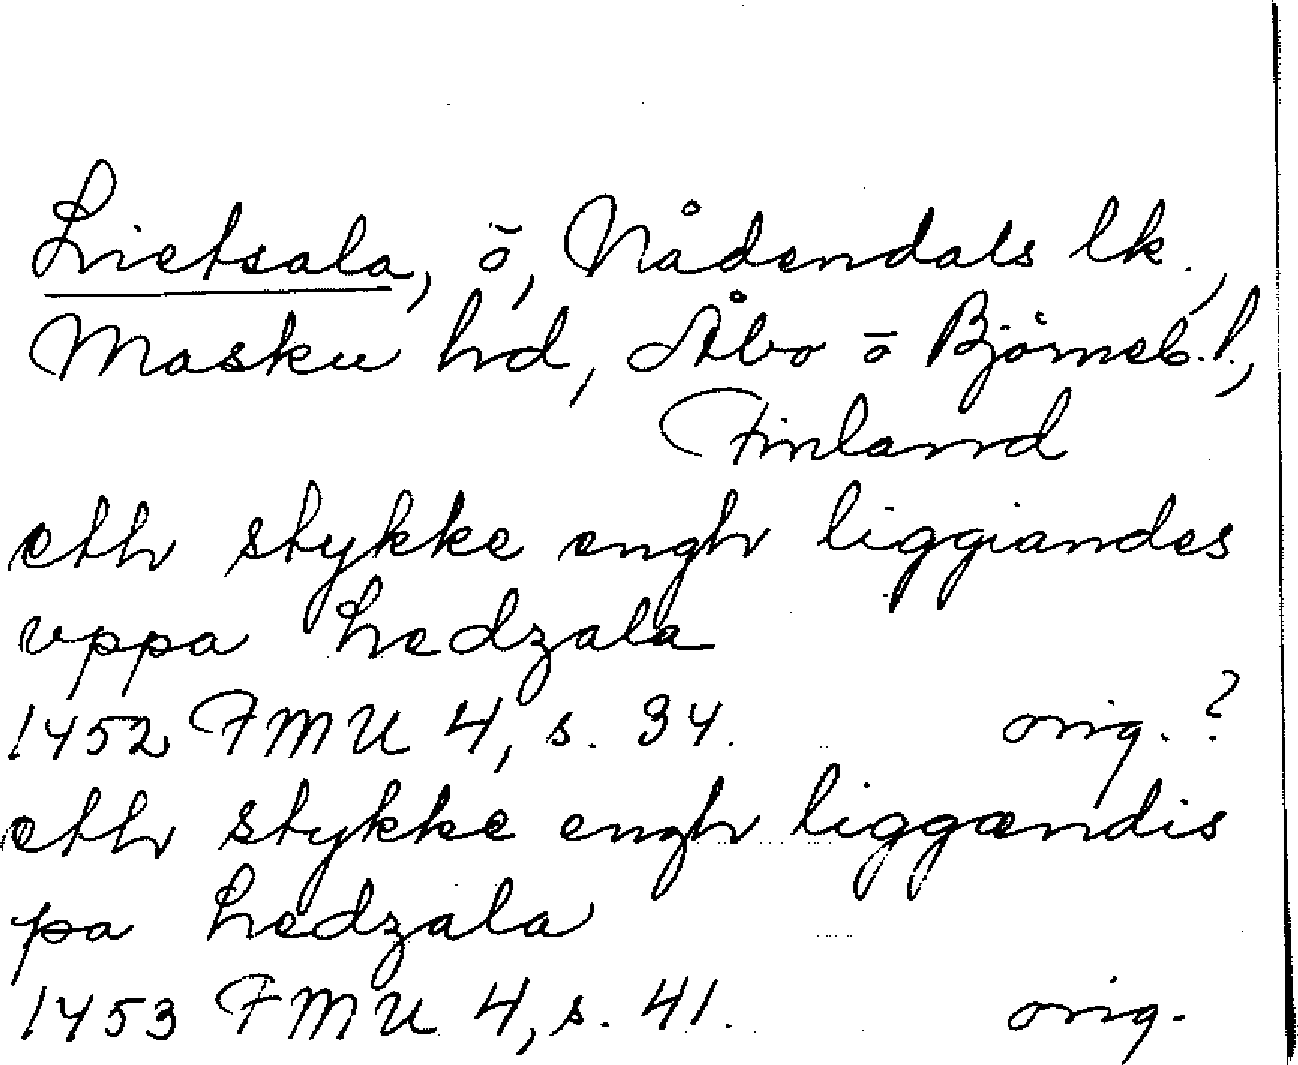 Lietsala, ō, Nådendals lk.,
Masku hd, Åbo ō Björneb. l.,
Finland
eth stykke engh liggiandes
vppa Ledzala
1452 FMU 4, s. 34. orig.?
eth stykke engh liggændis
pa Ledzala
1453 FMU 4, s. 41. orig.